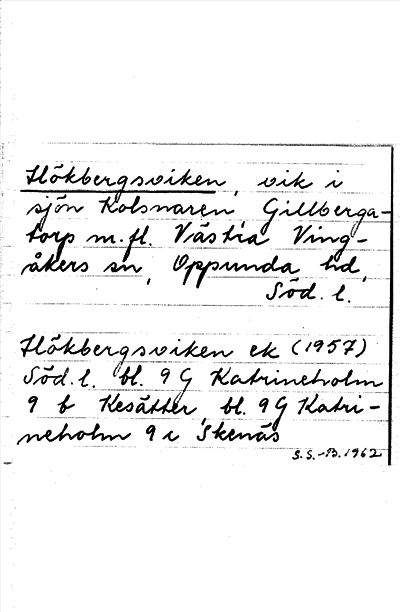 Hökbergsviken, vik i
sjön Kolsnaren, Gillberga-
torp m.fl. Västra Ving-
åkers sn, Oppunda hd,
Söd. l.
Hökbergsviken ek (1957)
Söd. l. bl. 9 G Katrineholm
9 b Kesätter, bl. 9 G Katri-
neholm 9 c Skenäs
S.S.-B. 1962